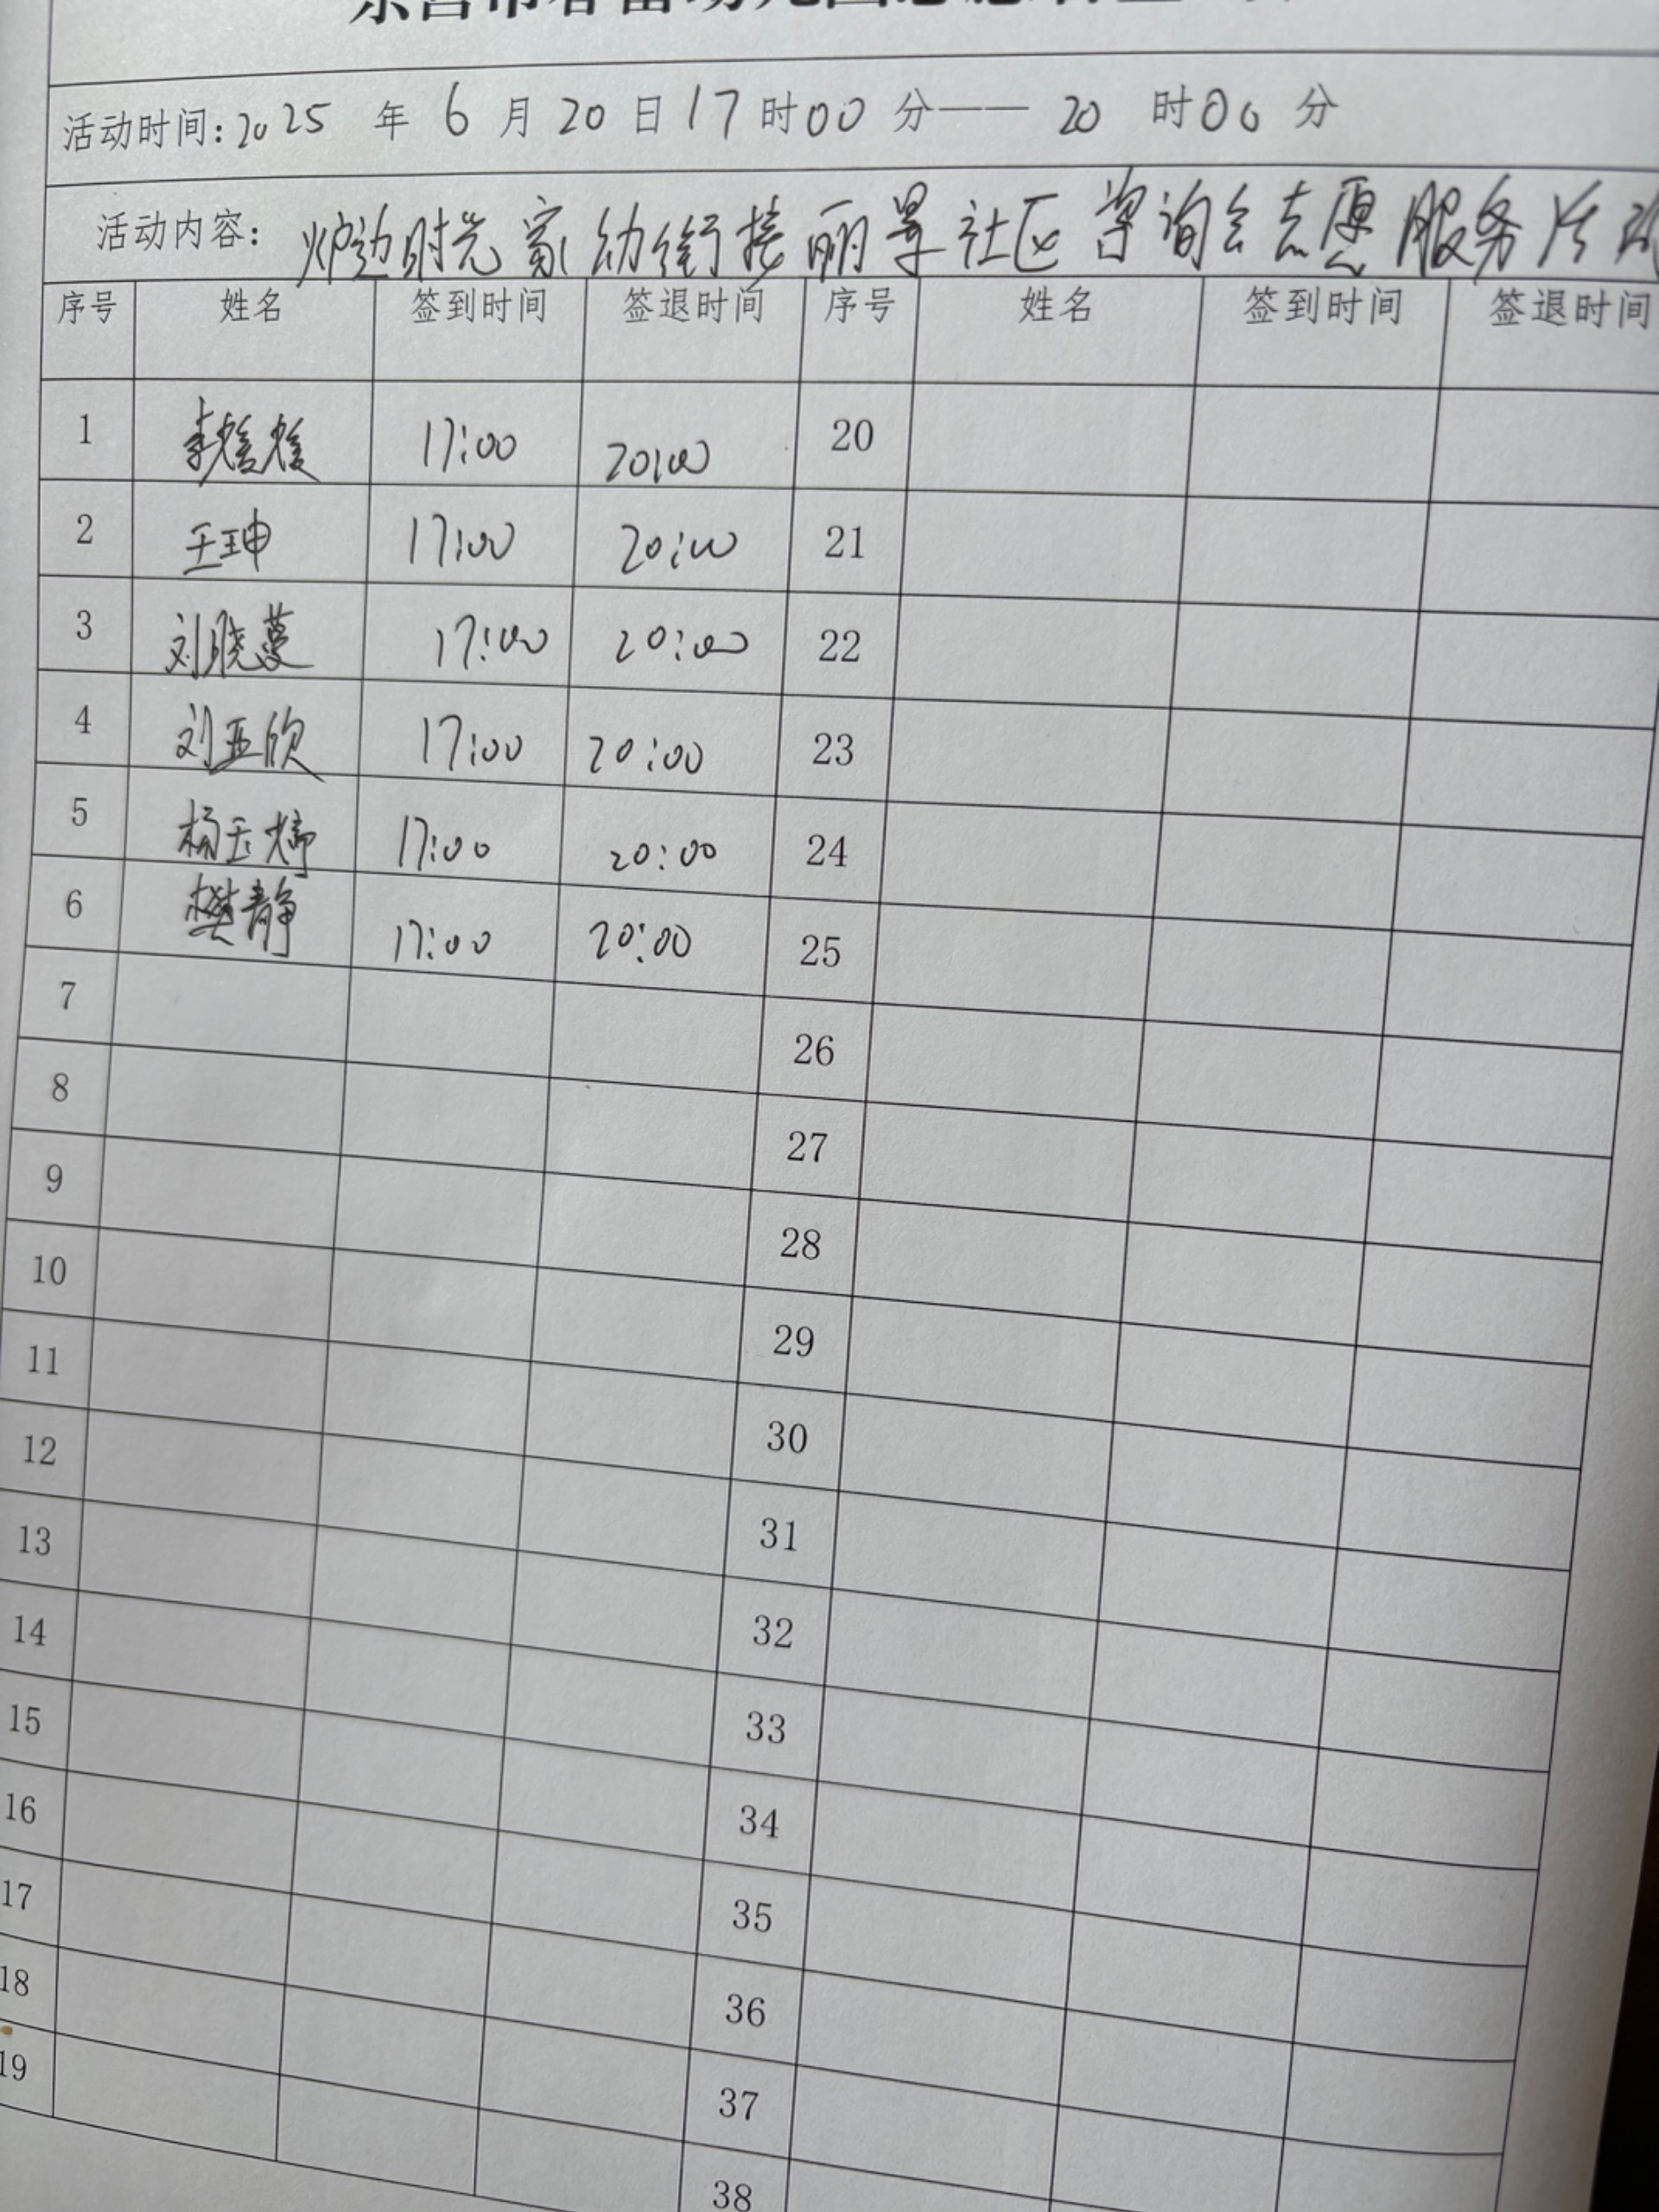 活动时间:2025 年 6 月 20 日 17 时 00 分—— 20 时 00 分
活动内容: 炉边时光 家幼衔接 丽景社区咨询会志愿服务活动
序号 姓名 签到时间 签退时间 序号 姓名 签到时间 签退时间
1 李 17:00 20:00 20
2 王珅 17:00 20:00 21
3 刘晓蔓 17:00 20:00 22
4 刘亚欣 17:00 20:00 23
5 杨玉婷 17:00 20:00 24
6 樊静 17:00 20:00 25
7 26
8 27
9 28
10 29
11 30
12 31
13 32
14 33
15 34
16 35
17 36
18 37
19 38